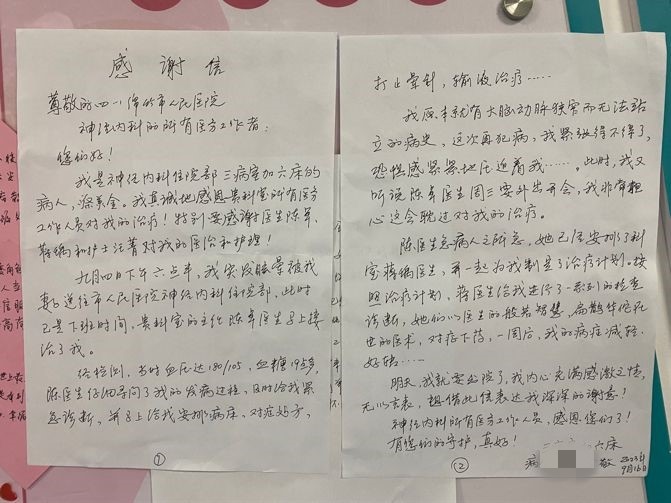 感谢信
尊敬的四川绵竹市人民医院
神经内科的所有医务工作者:
您们好!
我是神经内科住院部三病室加六床的
病人,我真诚地感恩贵科室所有医务
工作人员对我的治疗!特别要感谢医生陈军、
蒋编和护士汪菁对我的医治和护理!
九月四日下午六点半,我突发脑晕被我
妻送往市人民医院神经内科住院部,此时
已是下班时间,贵科室的主任陈军医生马上接
治了我。
经检测,当时血压达180/105,血糖19点多,
陈医生仔细寻问了我的发病过程,及时给我紧
急诊断,并马上给我安排病床,对症处方,
①
打止晕针,输液治疗……
我原来就有大脑动脉狭窄而无法站
立的病史,这次再犯病,我紧张得不得了,
恐惧感紧紧地压迫着我……。此时,我又
听说陈军医生周三要外出开会,我非常担
心这会耽过对我的治疗。
陈医生急病人之所急,她已经安排了科
室蒋编医生,并一起为我制定了治疗计划。按
照治疗计划,蒋医生给我进行了一系列的检查
诊断,她们以医生的般若智慧,扁鹊华佗在
世的医术,对症下药,一周后,我的病症减轻、
好转……
明天,我就要出院了,我内心充满感激之情,
无以言表,想借此信表达我深深的谢意!
神经内科所有医务工作人员,感恩您们了!
有您们的守护,真好!
病 六床
敬 2023年
9月16日
②